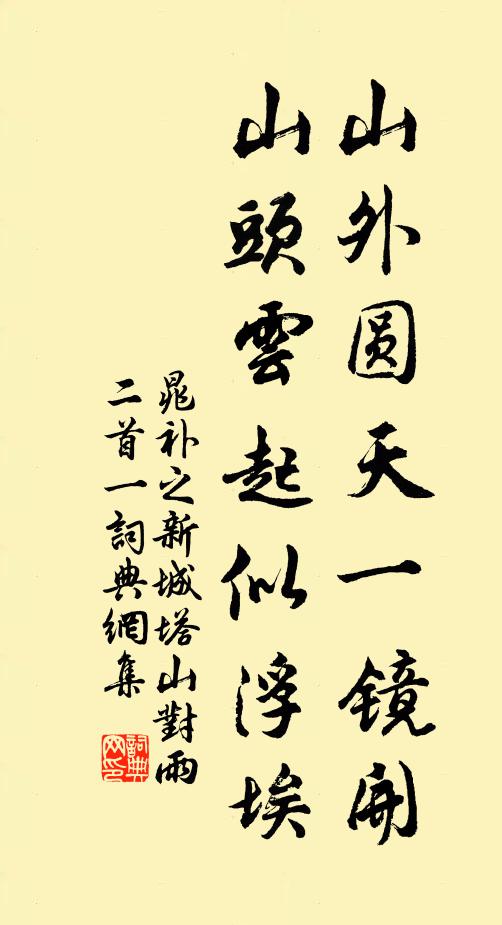 山外圆天一镜開
山頭雲起似浮埃
晁补之新城塔山對雨
二首一詞典網集
詞典
网印